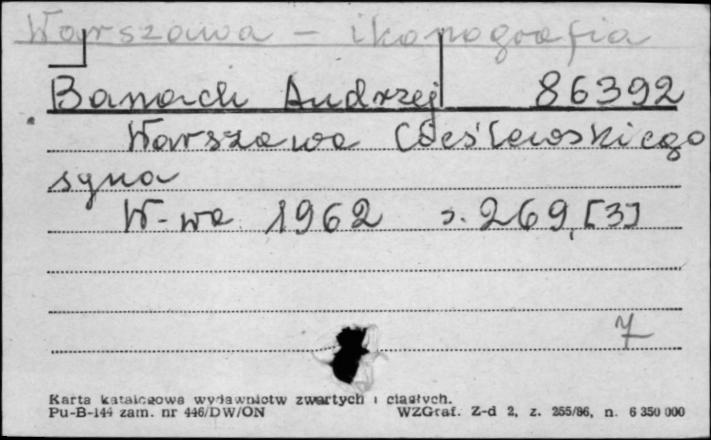 Warszawa - ikonografia
Banach Andrzej 86392
Warszawa Cieślewskiego
syna
W-wa 1962 s. 269, [3]
7
Karta katalogowa wydawnictw zwartych i ciągłych.
Pu-B-144 zam. nr 446/DW/ON WZGraf. Z-d 2, z. 255/86, n. 6 350 000